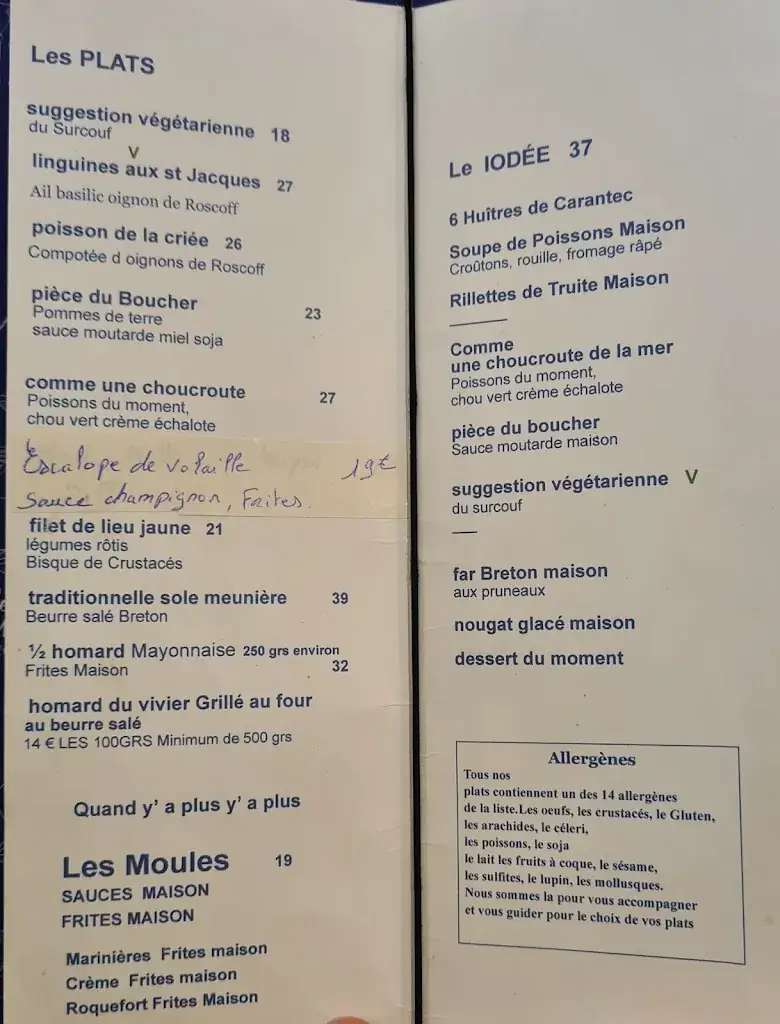 Les PLATS
suggestion végétarienne 18
du Surcouf
V
linguines aux st Jacques 27
Ail basilic oignon de Roscoff
poisson de la criée 26
Compotée d oignons de Roscoff
pièce du Boucher
Pommes de terre 23
sauce moutarde miel soja
comme une choucroute 27
Poissons du moment,
chou vert crème échalote
Escalope de volaille 19€
Sauce champignon, Frites.
filet de lieu jaune 21
légumes rôtis
Bisque de Crustacés
traditionnelle sole meunière 39
Beurre salé Breton
½ homard Mayonnaise 250 grs environ
Frites Maison 32
homard du vivier Grillé au four
au beurre salé
14 € LES 100GRS Minimum de 500 grs
Quand y' a plus y' a plus
Les Moules 19
SAUCES MAISON
FRITES MAISON
Marinières Frites maison
Crème Frites maison
Roquefort Frites Maison
Le IODÉE 37
6 Huîtres de Carantec
Soupe de Poissons Maison
Croûtons, rouille, fromage râpé
Rillettes de Truite Maison
Comme
une choucroute de la mer
Poissons du moment,
chou vert crème échalote
pièce du boucher
Sauce moutarde maison
suggestion végétarienne V
du surcouf
far Breton maison
aux pruneaux
nougat glacé maison
dessert du moment
Allergènes
Tous nos
plats contiennent un des 14 allergènes
de la liste.Les oeufs, les crustacés, le Gluten,
les arachides, le céleri,
les poissons, le soja
le lait les fruits à coque, le sésame,
les sulfites, le lupin, les mollusques.
Nous sommes la pour vous accompagner
et vous guider pour le choix de vos plats